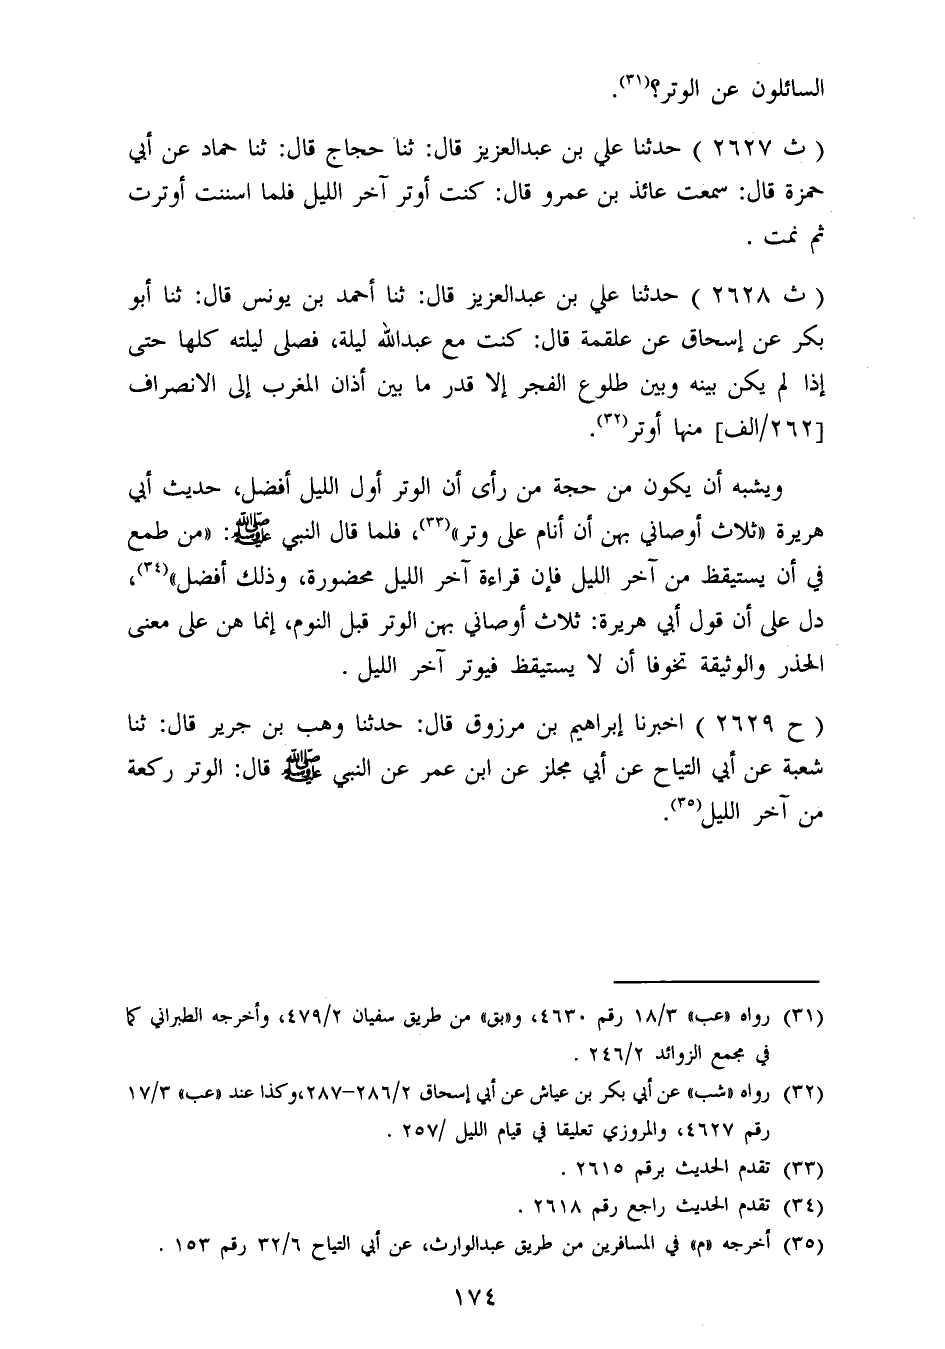 السائلون عن الوتر؟(٣١).
( ث ٢٦٢٧ ) حدثنا علي بن عبدالعزيز قال: ثنا حجاج قال: ثنا حماد عن أبي
حمزة قال: سمعت عائذ بن عمرو قال: كنت أوتر آخر الليل فلما اسننت أوترت
ثم نمت .
( ث ٢٦٢٨ ) حدثنا علي بن عبدالعزيز قال: ثنا أحمد بن يونس قال: ثنا أبو
بكر عن إسحاق عن علقمة قال: كنت مع عبدالله ليلة، فصلى ليلته كلها حتى
إذا لم يكن بينه وبين طلوع الفجر إلا قدر ما بين أذان المغرب إلى الانصراف
[٢٦٢/الف] منها أوتر(٣٢).
ويشبه أن يكون من حجة من رأى أن الوتر أول الليل أفضل، حديث أبي
هريرة «ثلاث أوصاني بهن أن أنام على وتر»(٣٣)، فلما قال النبي ﷺ: «من طمع
في أن يستيقظ من آخر الليل فإن قراءة آخر الليل محضورة، وذلك أفضل»(٣٤)،
دل على أن قول أبي هريرة: ثلاث أوصاني بهن الوتر قبل النوم، إنما هن على معنى
الحذر والوثيقة تخوفا أن لا يستيقظ فيوتر آخر الليل .
( ح ٢٦٢٩ ) اخبرنا إبراهيم بن مرزوق قال: حدثنا وهب بن جرير قال: ثنا
شعبة عن أبي التياح عن أبي مجلز عن ابن عمر عن النبي ﷺ قال: الوتر ركعة
من آخر الليل(٣٥).
(٣١) رواه «عب» ١٨/٣ رقم ٤٦٣٠، و«بق» من طريق سفيان ٤٧٩/٢، وأخرجه الطبراني كما
في مجمع الزوائد ٢٤٦/٢ .
(٣٢) رواه «شب» عن أبي بكر بن عياش عن أبي إسحاق ٢٨٦/٢–٢٨٧،وكذا عند «عب» ١٧/٣
رقم ٤٦٢٧، والمروزي تعليقا في قيام الليل /٢٥٧ .
(٣٣) تقدم الحديث برقم ٢٦١٥ .
(٣٤) تقدم الحديث راجع رقم ٢٦١٨ .
(٣٥) أخرجه «م» في المسافرين من طريق عبدالوارث، عن أبي التياح ٣٢/٦ رقم ١٥٣ .
١٧٤